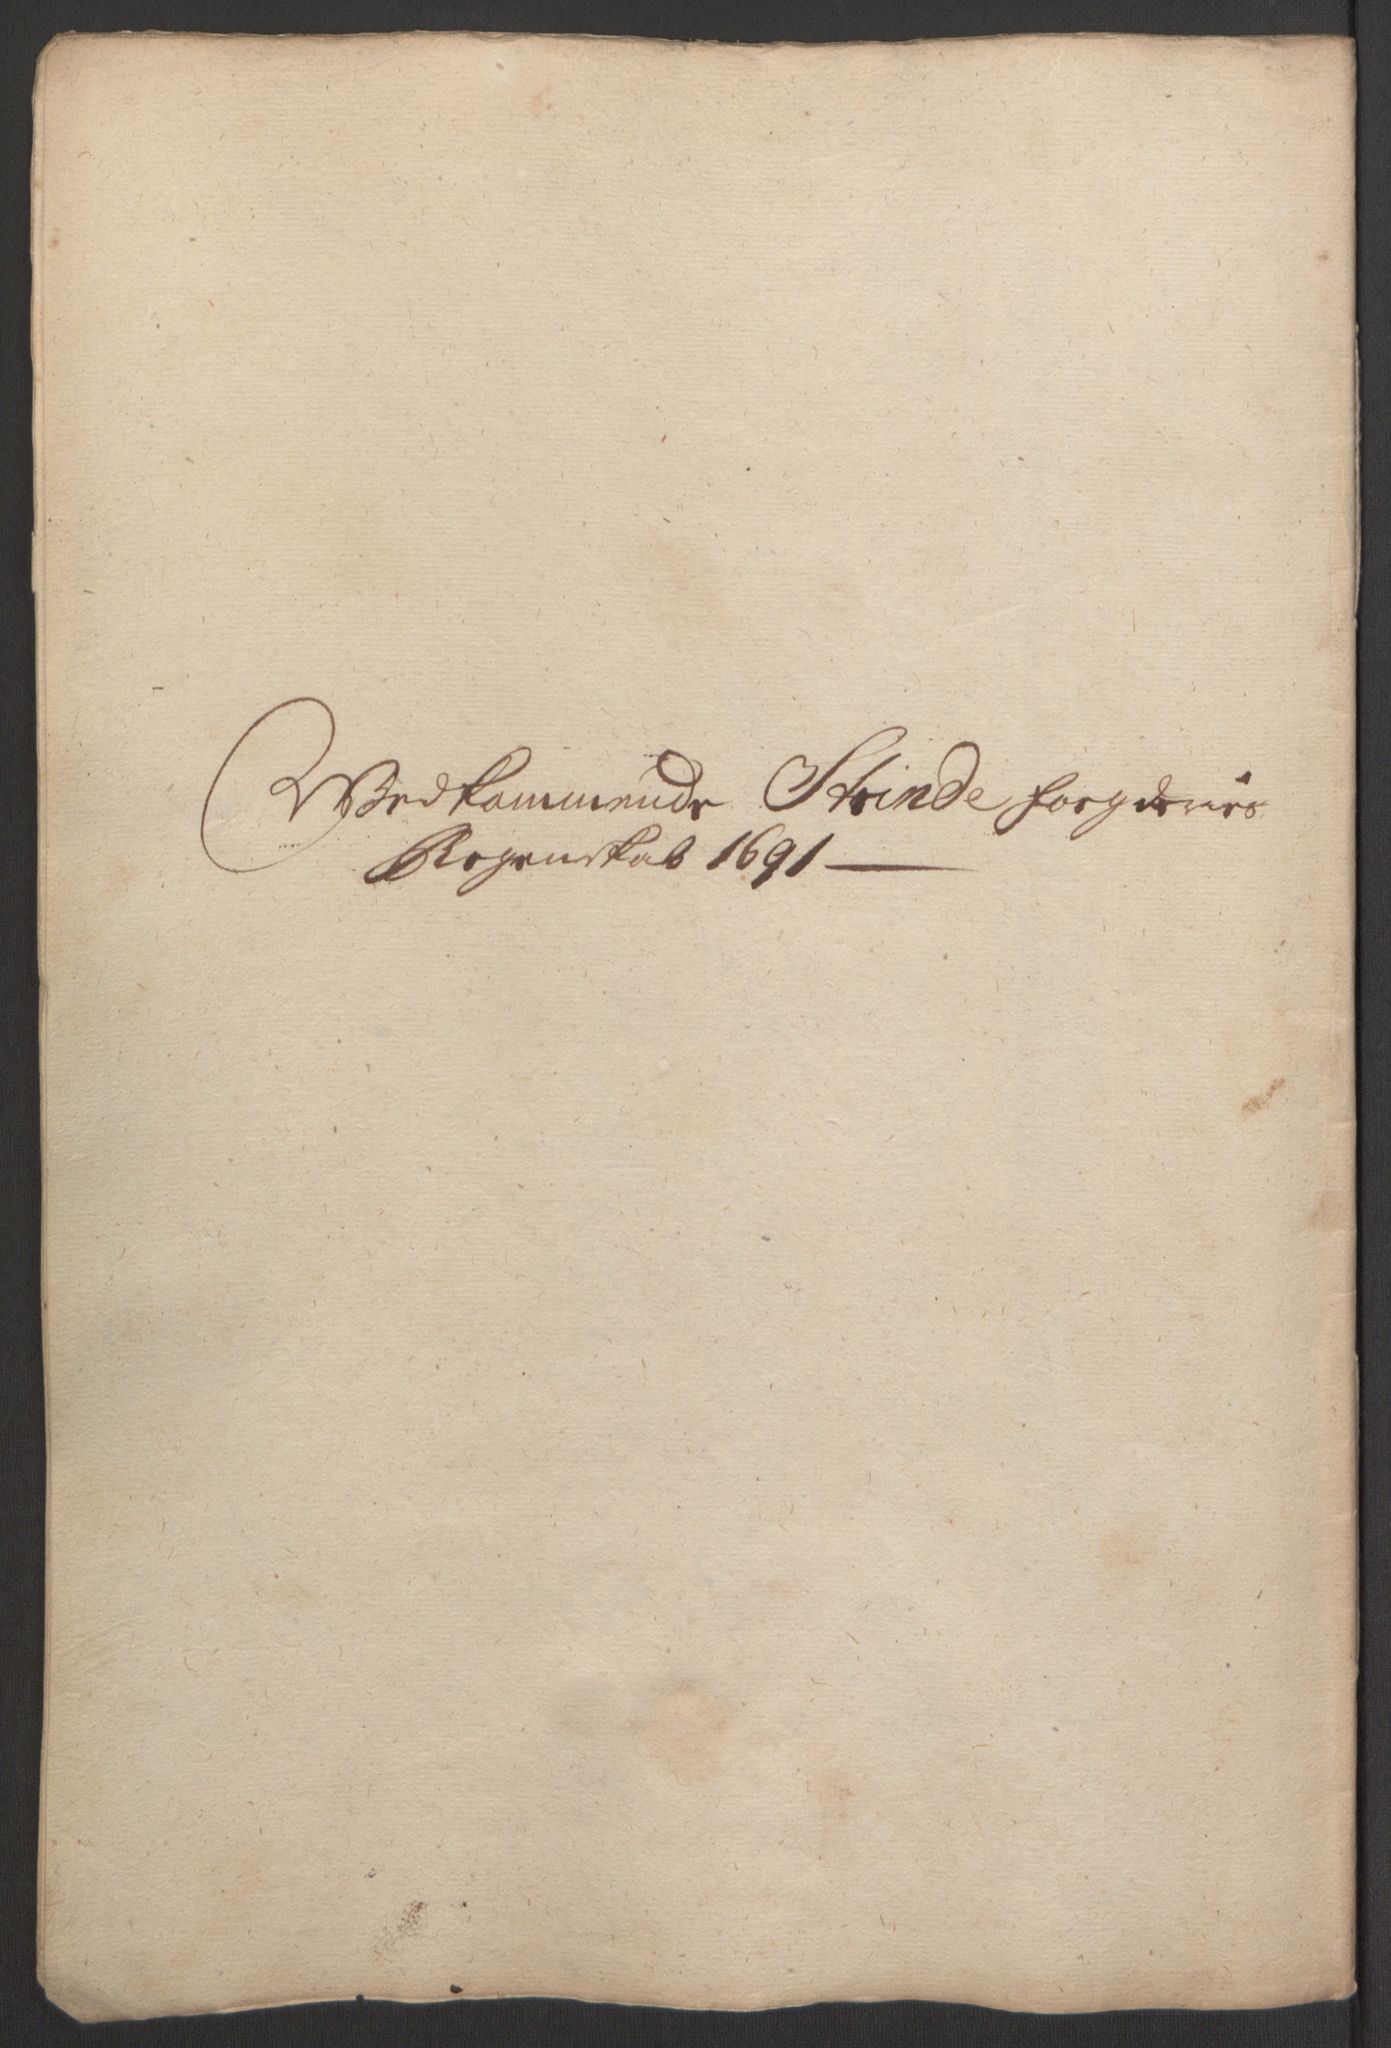 Vedkommende Strinde fogderies
Regenskab 1691